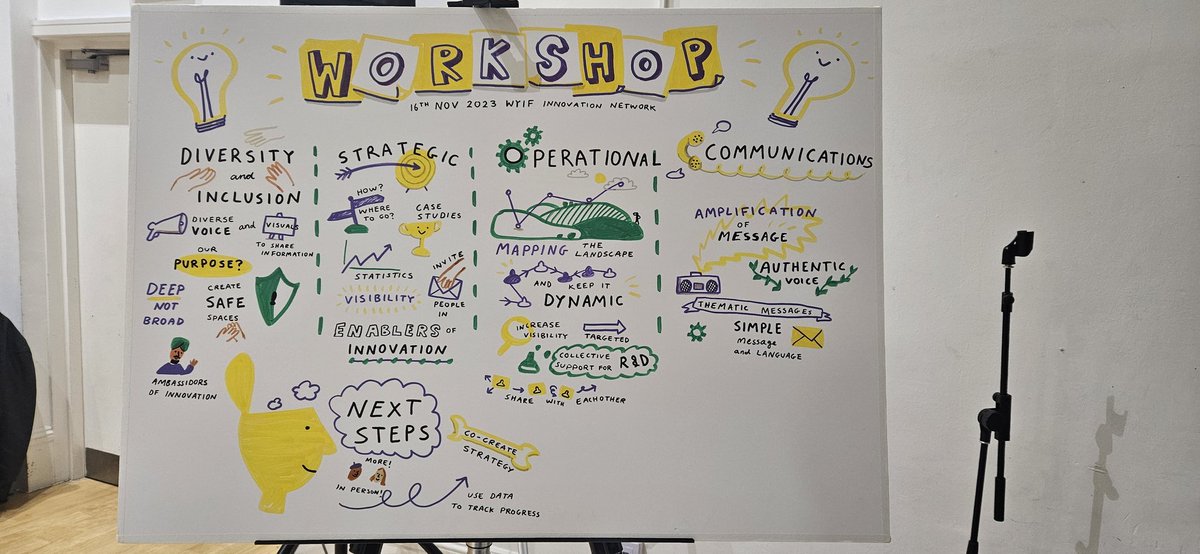 WORKSHOP
16TH NOV 2023 WYIF INNOVATION NETWORK
DIVERSITY
and
INCLUSION
DIVERSE
VOICE and VISUALS
TO SHARE
INFORMATION
OUR
PURPOSE?
DEEP
NOT
BROAD
CREATE
SAFE
SPACES
AMBASSIDORS
OF INNOVATION
STRATEGIC
HOW?
WHERE
TO GO?
CASE
STUDIES
STATISTICS
INVITE
PEOPLE
IN
VISIBILITY
ENABLERS OF
INNOVATION
OPERATIONAL
MAPPING THE
LANDSCAPE
AND KEEP IT
DYNAMIC
INCREASE
VISIBILITY
TARGETED
COLLECTIVE
SUPPORT FOR R&D
SHARE WITH EACHOTHER
COMMUNICATIONS
AMPLIFICATION
OF
MESSAGE
AUTHENTIC
VOICE
THEMATIC MESSAGES
SIMPLE
Message
and LANGUAGE
NEXT
STEPS
MORE!
IN PERSON!
CO-CREATE
STRATEGY
USE DATA
TO TRACK PROGRESS